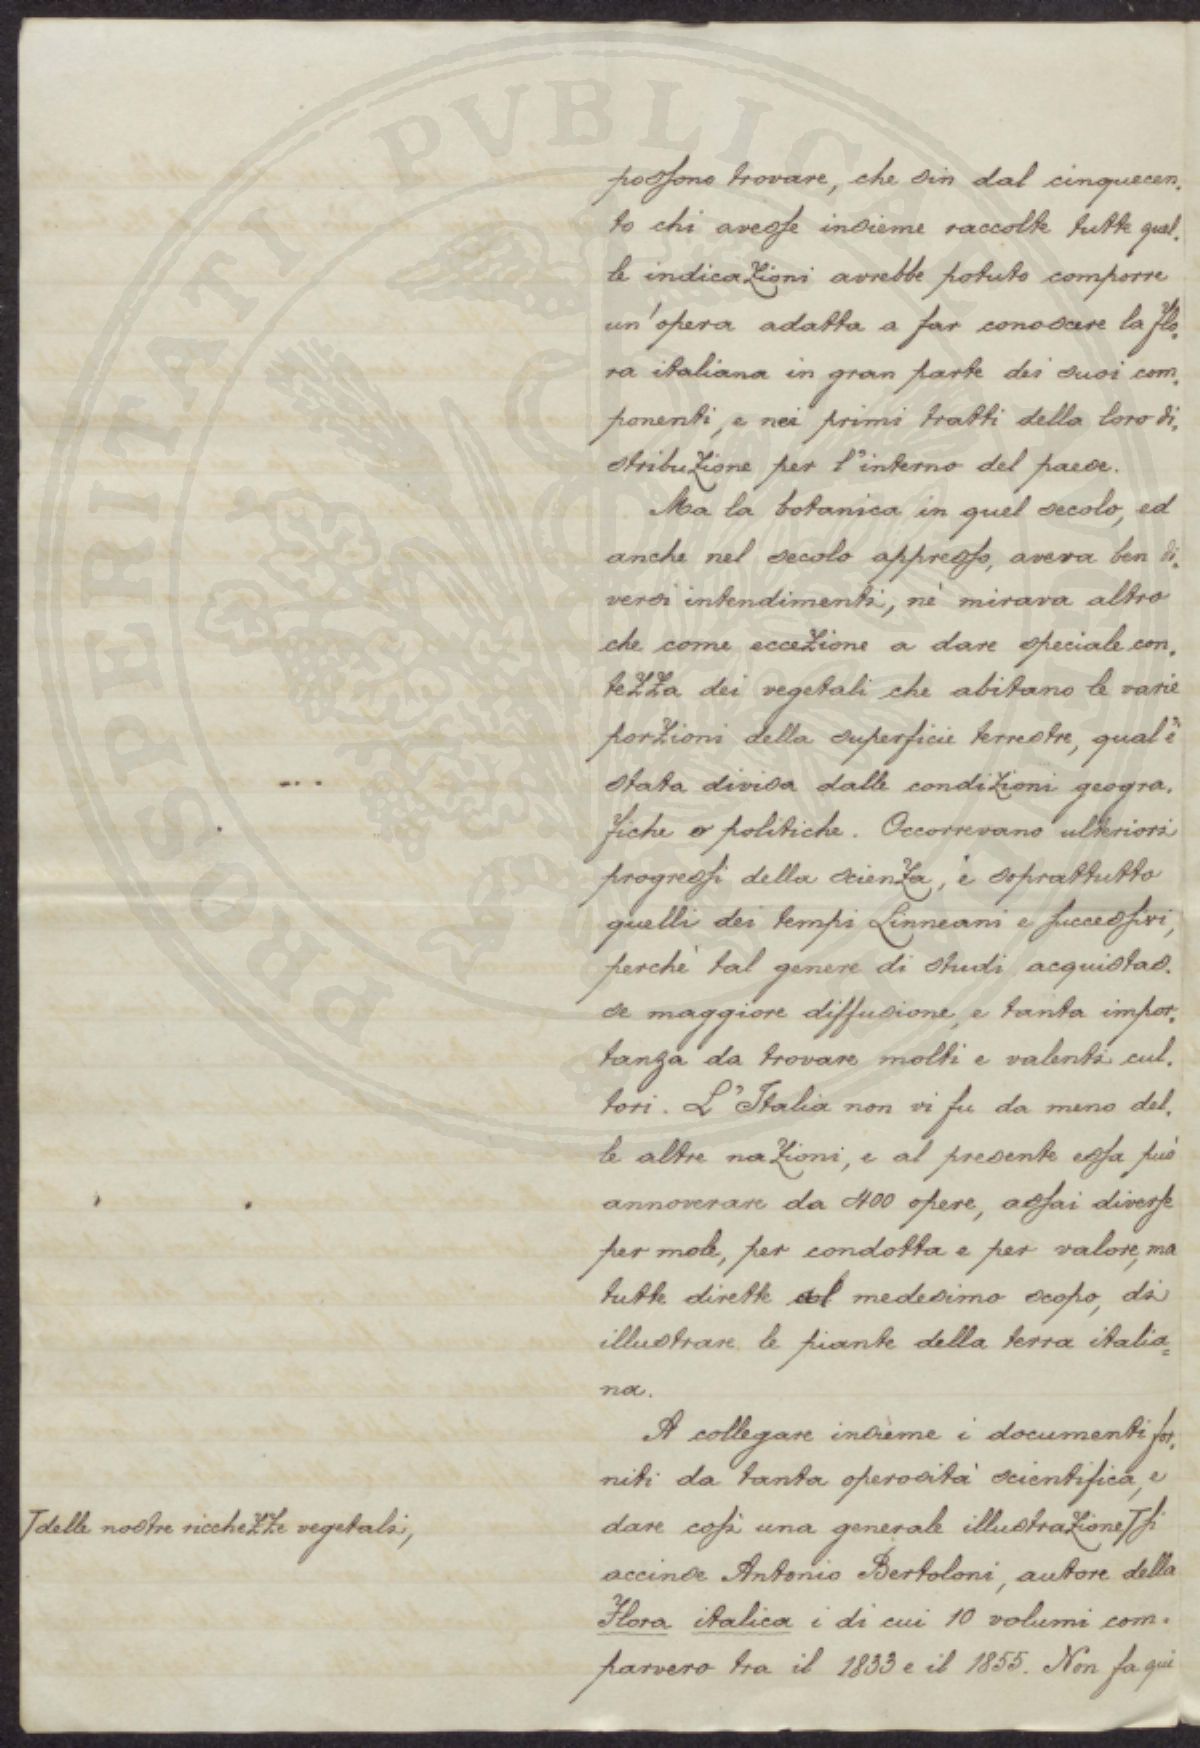 possono trovare, che sin dal cinquecen-
to chi avesse insieme raccolte tutte quel-
le indicazioni avrebbe potuto comporre
un'opera adatta a far conoscere la Flo-
ra italiana in gran parte dei suoi com-
ponenti, e nei primi tratti della loro di-
stribuzione per l'interno del paese.
Ma la botanica in quel secolo, ed
anche nel secolo appresso, aveva ben di-
versi intendimenti, nè mirava altro
che come eccezione a dare speciale con-
tezza dei vegetali che abitano le varie
porzioni della superficie terrestre, qual'è
stata divisa dalle condizioni geogra-
fiche o politiche. Occorrevano ulteriori
progressi della scienza, e soprattutto
quelli dei tempi Linneani e successivi,
perchè tal genere di studi acquistas-
se maggiore diffusione, e tanta impor-
tanza da trovare molti e valenti cul-
tori. L'Italia non vi fu da meno del-
le altre nazioni, e al presente essa può
annoverare da 400 opere, assai diverse
per mole, per condotta e per valore, ma
tutte dirette al medesimo scopo, di
illustrare le piante della terra italia=
na.
A collegare insieme i documenti for-
niti da tanta operosità scientifica, e
dare così una generale illustrazione si
delle nostre ricchezze vegetali,
accinse Antonio Bertoloni, autore della
Flora italica i di cui 10 volumi com-
parvero tra il 1833 e il 1855. Non fa qui
PROSPERITATI PVBLICAE